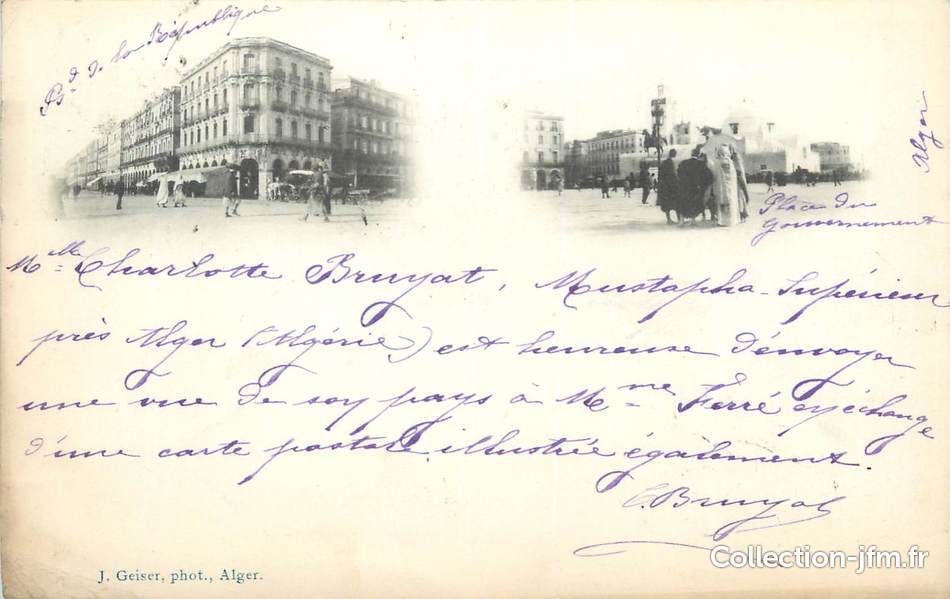 Bd. de la République
Alger
Place du
Gouvernement
Melle Charlotte Bruyat, Mustapha-Supérieur
près Alger (Algérie) est heureuse d'envoyer
une vue de soy pays à Mme Ferré ey échange
d'une carte postale illustrée également.
C. Bruyat
J. Geiser, phot., Alger.
Collection-jfm.fr